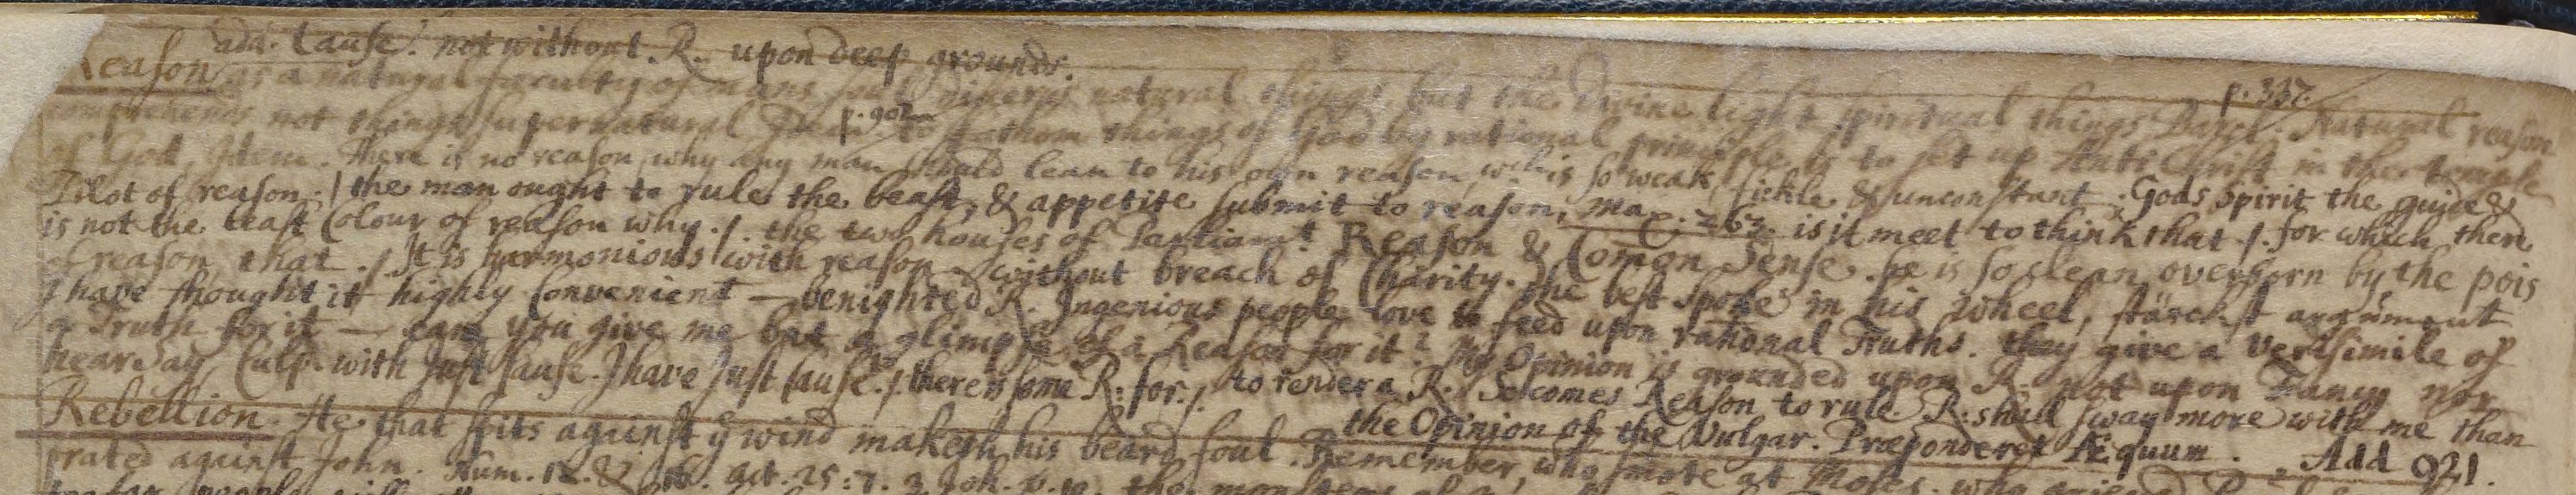 add. Cause. not without R. upon deep grounds.
Reason as a natural faculty of mans soul discerns natural things, but the Divine light spiritual things Baxt. Natural reason
p. 337.
comprehends not things supernatural Idem to fathom things of God by rational principles is to set up Anti Christ in the temple
p. 902
of God, Idem. There is no reason why any man should lean to his own reason, wch is so weak, fickle & unconstant. Gods spirit the guide &
Pilot of reason. / the man ought to rule the beast, & appetite submit to reason, max. 263. is it meet to think that /. for which there
is not the least Colour of reason why. /. the two houses of Reason & Comon Sense. he is so clean overborn by the pois
of reason, that. / It is harmonious with reason - without breach of Charity. The best Spoke in his wheel, starchst argument
I have thought it highly Convenient - benighted R. Ingenious people love to feed upon rational Truths. they give a Verisimile of
a Truth for it - can you give me but a glimpse of a Reason for it? My Opinion is grounded upon R. not upon Fancy nor
hear Say Culp. with Just Cause. I have Just Cause. /. there is some R: for. /. to render a R. So comes Reason to rule. R: shall sway more with me than
the Opinion of the Vulgar. Præponderet Æquum. Add 921.
Rebellion. He that spits against ye wind maketh his beard foul. Remember, who smote at Moses. who
prated against John. Num. 12. & 16. Act. 25:7. 3 Joh. the monsters of
people